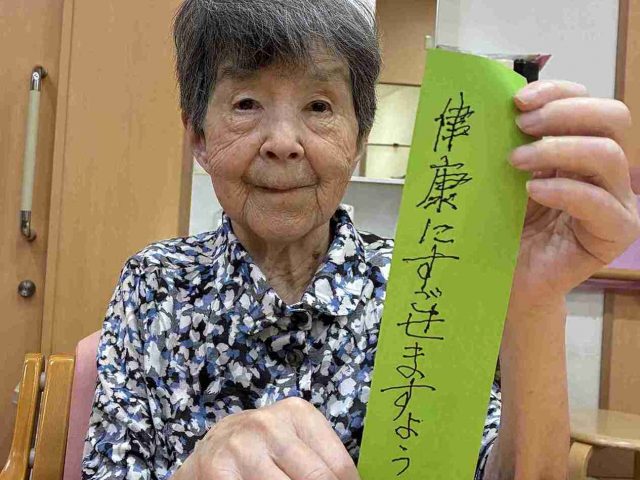 健康にすごせますよう